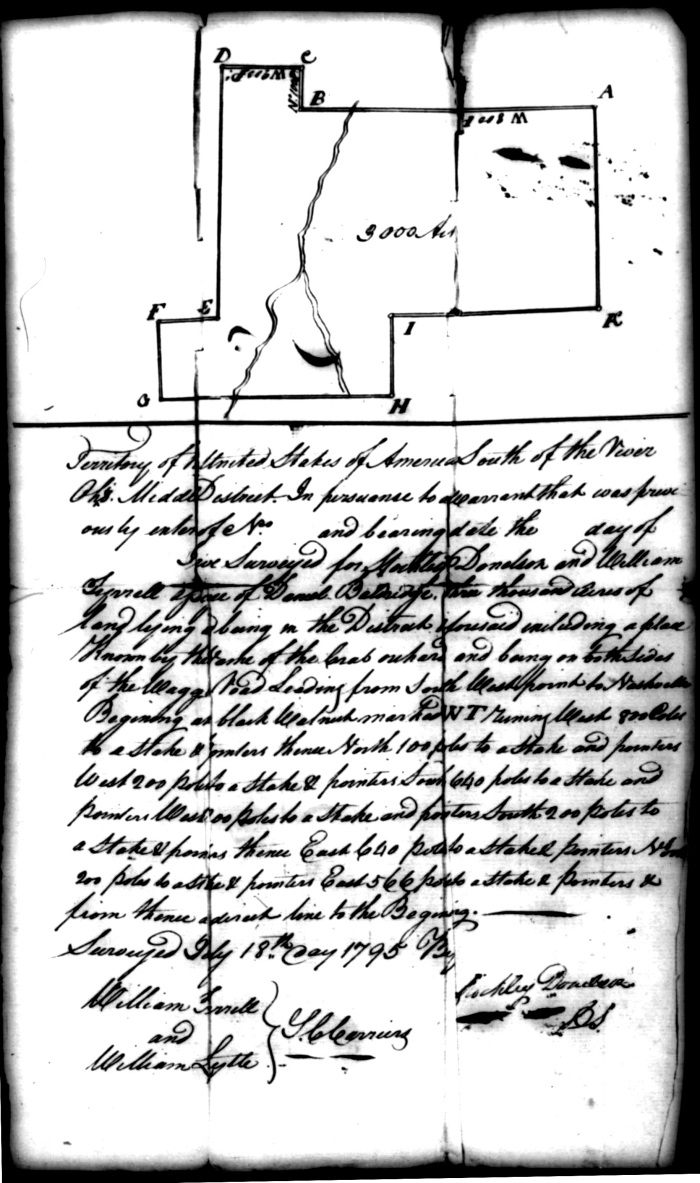 D C
W 200 P.
B A
W 800 P
3000 Acs
F E I K
G H
Territory of the United States of America South of the River
Ohio Middle District. In pursuance to a warrant that was previ
ously enter of No and bearing date the day of
I've Surveyed for Stockley Donelson and William
Tyrrell of Daniel three thousand acres of
land lying & being in the District aforesaid including a place
Known by the name of the Crab orchard and being on both sides
of the Waggon Road Leading from South West point to Nashville
Begining at black Walnut marked W T Runing West 800 Poles
to a Stake & pointers thence North 100 poles to a Stake and pointers
West 200 poles to a Stake & pointers South 640 poles to a Stake and
pointers West 00 poles to a Stake and pointers South 200 poles to
a Stake & pointers thence East 640 poles to a Stake & pointers North
200 poles to a Stake & pointers East 566 poles to a Stake & Pointers &
from thence a derect line to the Begining.
Surveyed July 18th day 1795 By
Stockley Donelson
DS
William Tirrell
and
William Lytle
S.C Carriers